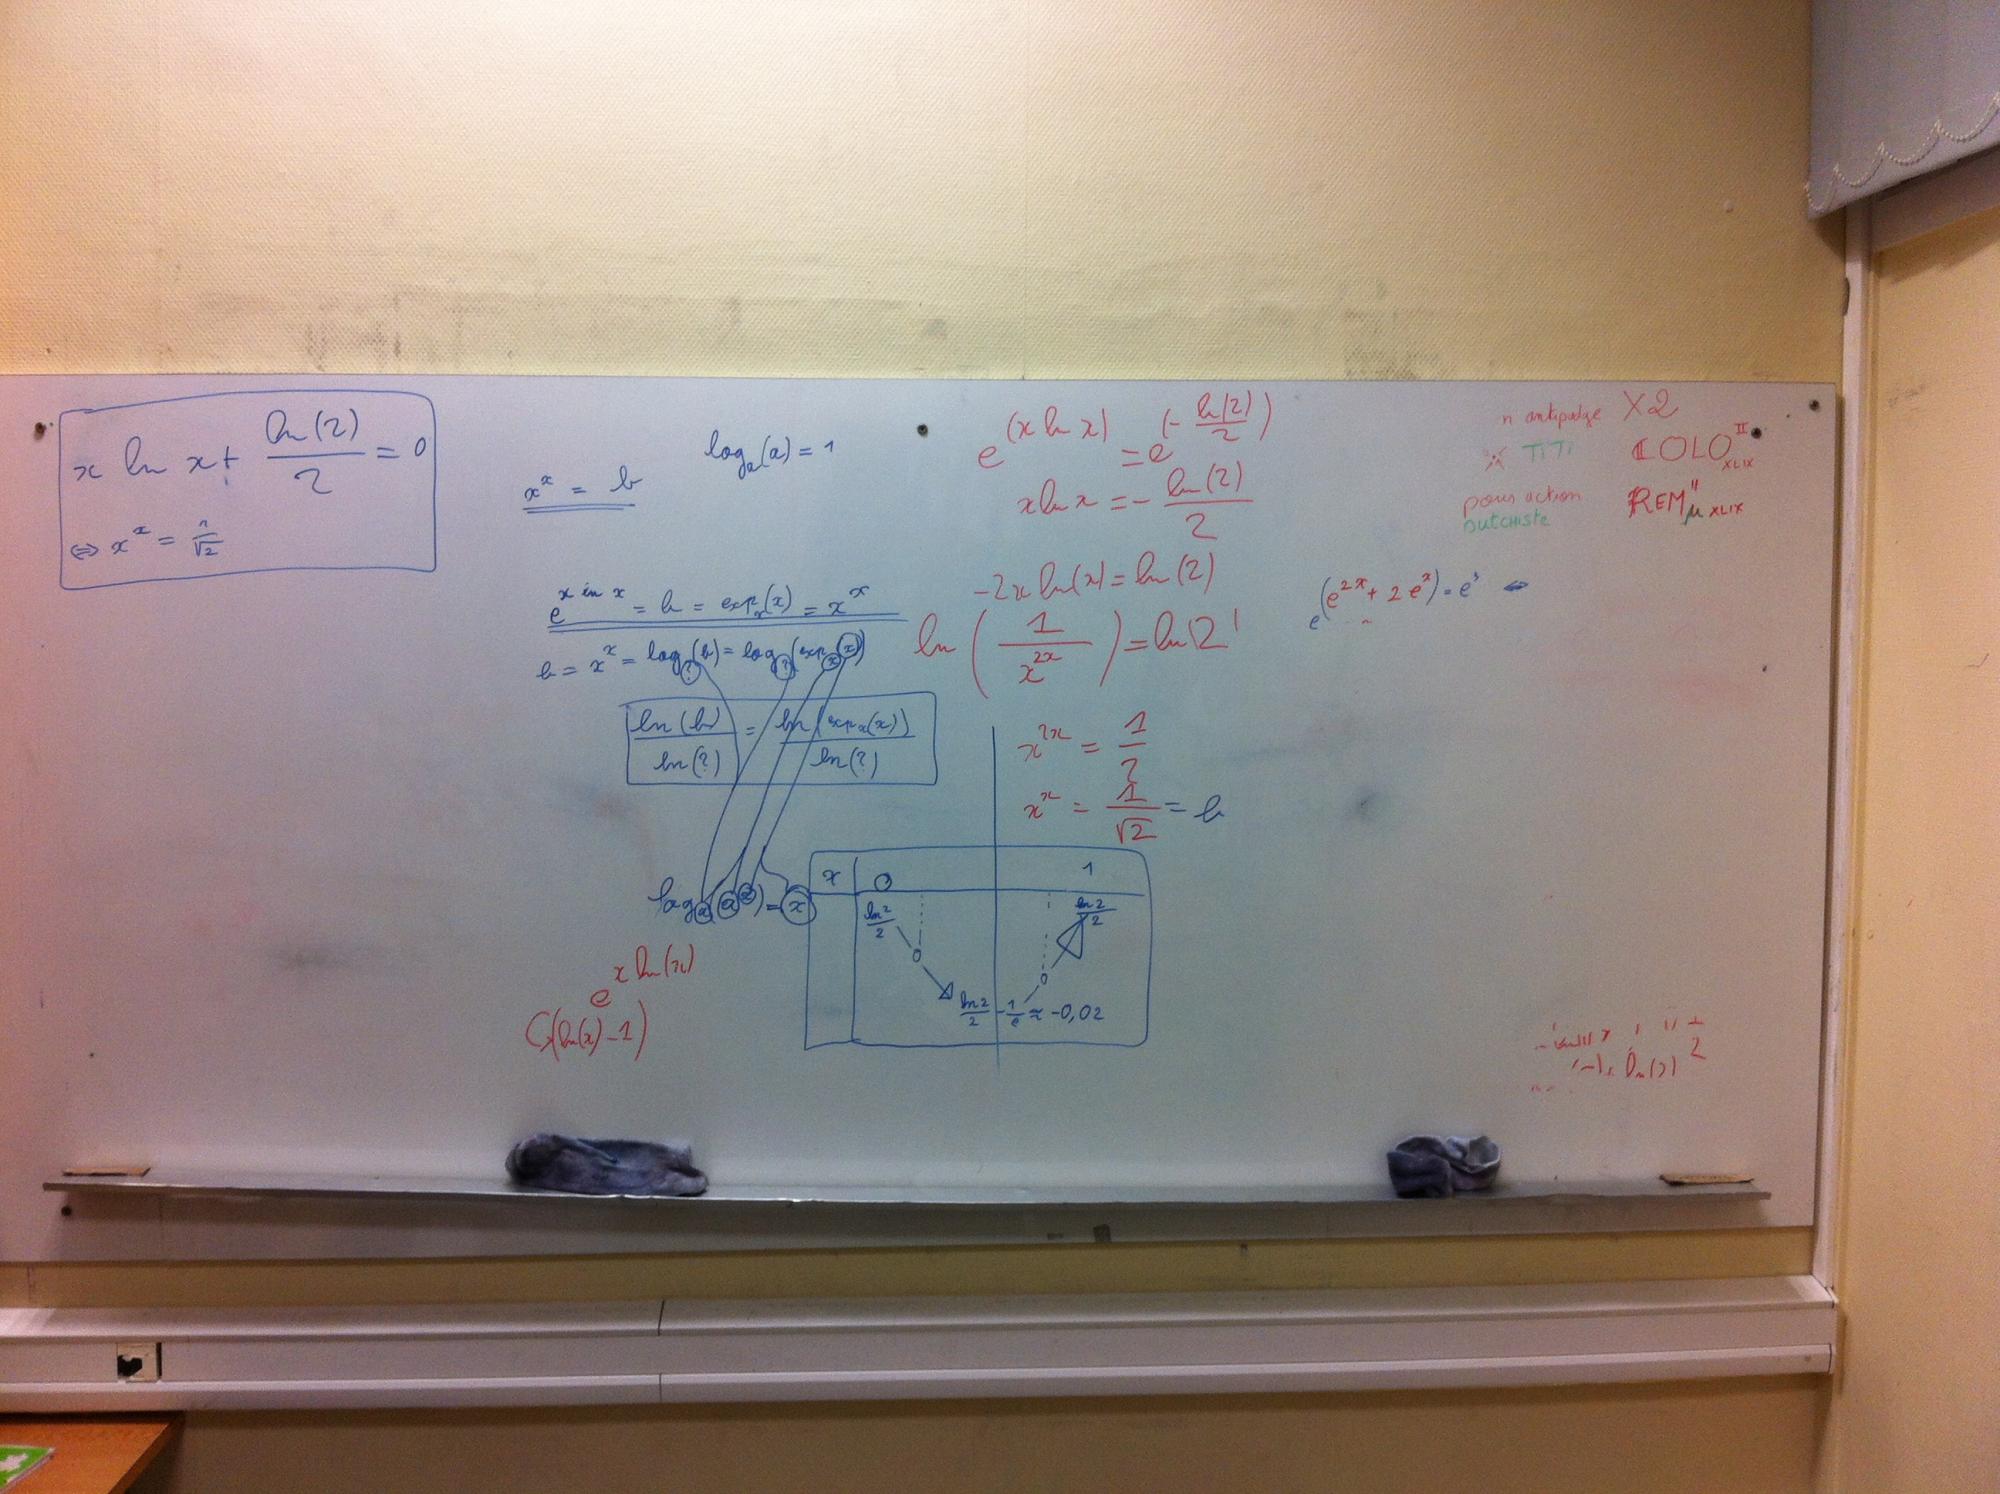 x ln x + ln(2)/2 = 0
⇔ x^x = 1/√2
x^x = b
log_a(a) = 1
e^(x ln x) = b = exp_x(x) = x^x
b = x^x = log_?(b) = log_?(exp_x(x))
ln(b)/ln(?) = ln(exp_x(x))/ln(?)
log_a(a^x) = x
e^(x ln(x))
(ln(x) - 1)
e^(x ln x) = e^(- ln(2)/2)
x ln x = - ln(2)/2
-2x ln(x) = ln(2)
ln(1/x^2x) = ln 2
x^2x = 1/2
x^x = 1/√2 = b
x 0 1
ln2/2 ln2/2
ln2/2 - 1/e ≈ -0,02
n antipudge X2
TiTi COLO II XLIX
pour action REM" μ XLIX
putchiste
e^(e^2x + 2e^x) = e^3 ⇔
ln(2)
2